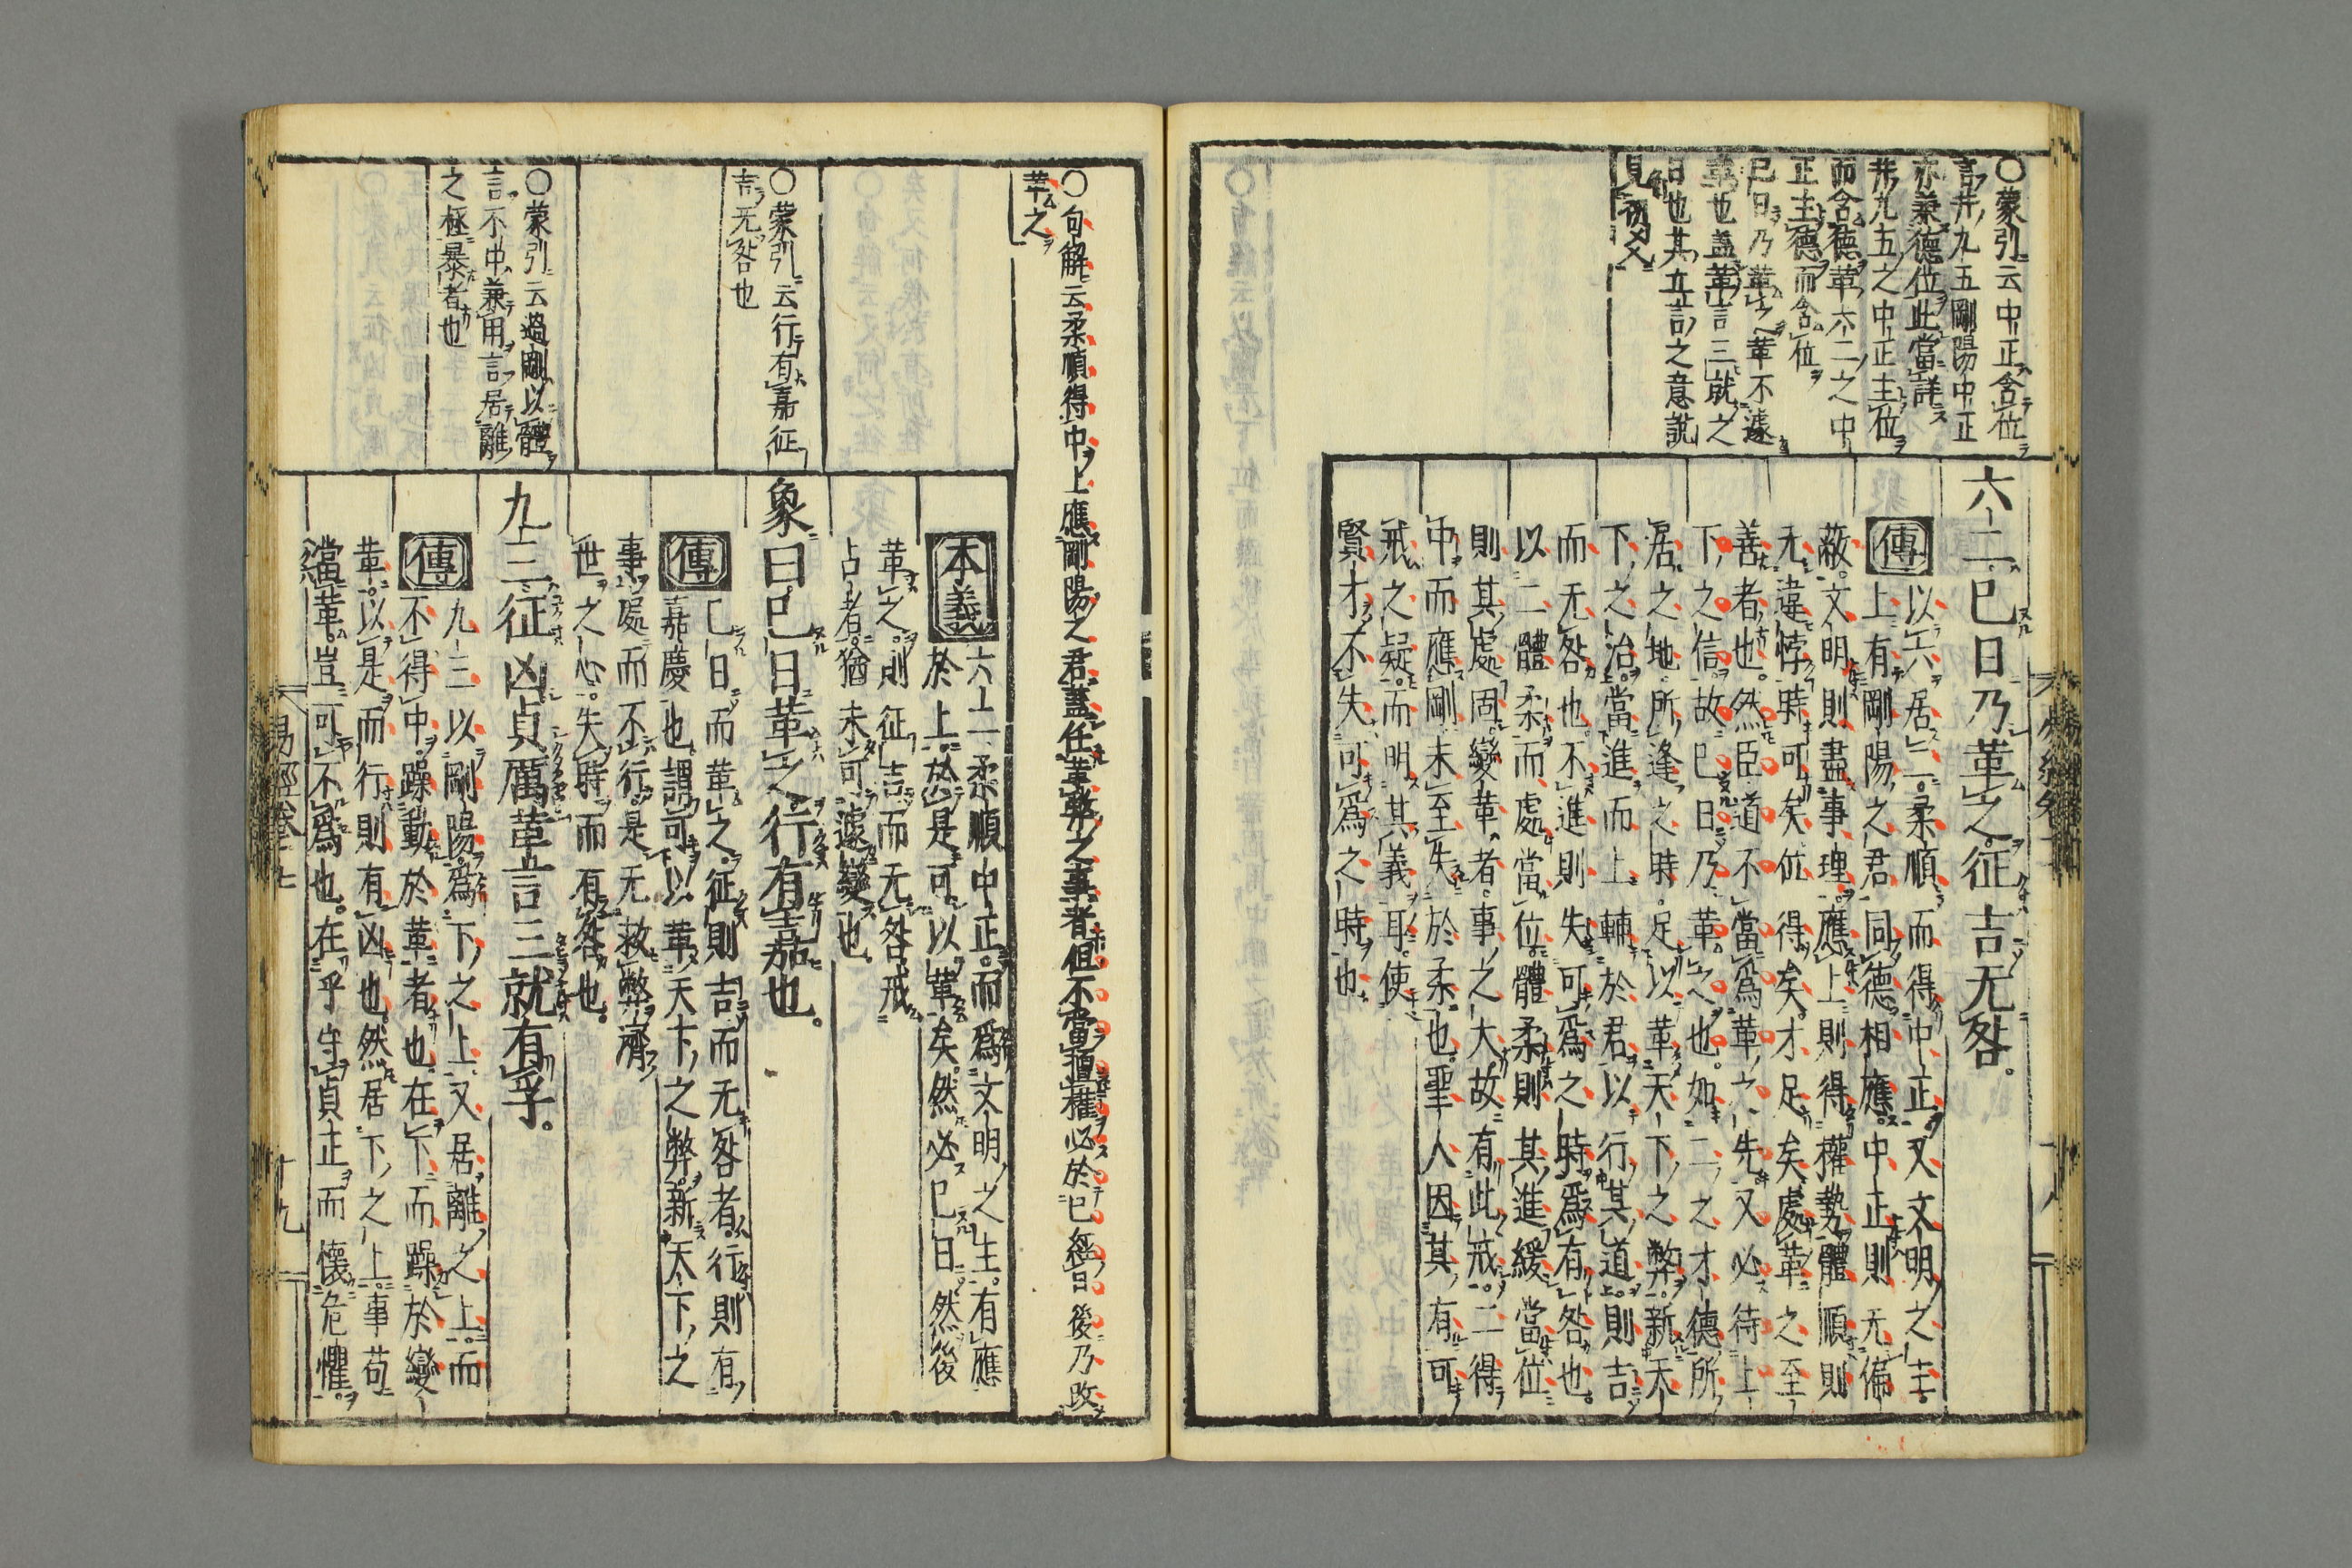 ○蒙引云中正含位
言井九五剛陽中正
亦兼德位此當詳
井九五之中正主位
而含德革六二之中
正主德而含位
已日乃革之革不遽
革也蓋革言三就之
日也其立言之意說
見初爻
六二已日乃革之征吉无咎
傳
以六居二柔順而得中正又文明之主
上有剛陽之君同德相應中正則无偏
蔽文明則盡事理應上則得權勢體順則
无違悖時可矣位得矣才足矣處革之至
善者也然臣道不當爲革之先又必待上
下之信故已日乃革之也如二之才德所
居之地所逢之時足以革天下之弊新天
下之治當進而上輔於君以行其道則吉
而无咎也不進則失可爲之時爲有咎也
以二體柔而處當位體柔則其進緩當位
則其處固變革者事之大故有此戒二得
中而應剛未至失於柔也聖人因其有可
戒之疑而明其義耳使
賢才不失可爲之時也
十八
○句解云柔順得中上應剛陽之君蓋任革弊之事者但不當擅權必於已經日後乃改
革之
本義
六二柔順中正而爲文明之主有應
於上於是可以革矣然必已日然後
革之則征吉而无咎戒
占者猶未可遽變也
○蒙引云行有嘉征
吉无咎也
象曰已日革之行有嘉也
傳
已日而革之征則吉而无咎者行則有
嘉慶也謂可以革天下之弊新天下之
事處而不行是无救弊濟
世之心失時而有咎也
○蒙引云過剛以體
言不中兼用言居離
之極暴者也
九三征凶貞厲革言三就有孚
傳
九三以剛陽爲下之上又居離之上而
不得中躁動於革者也在下而躁於變
革以是而行則有凶也然居下之上事苟
當革豈可不爲也在乎守貞正而懷危懼
易經卷十七
十九